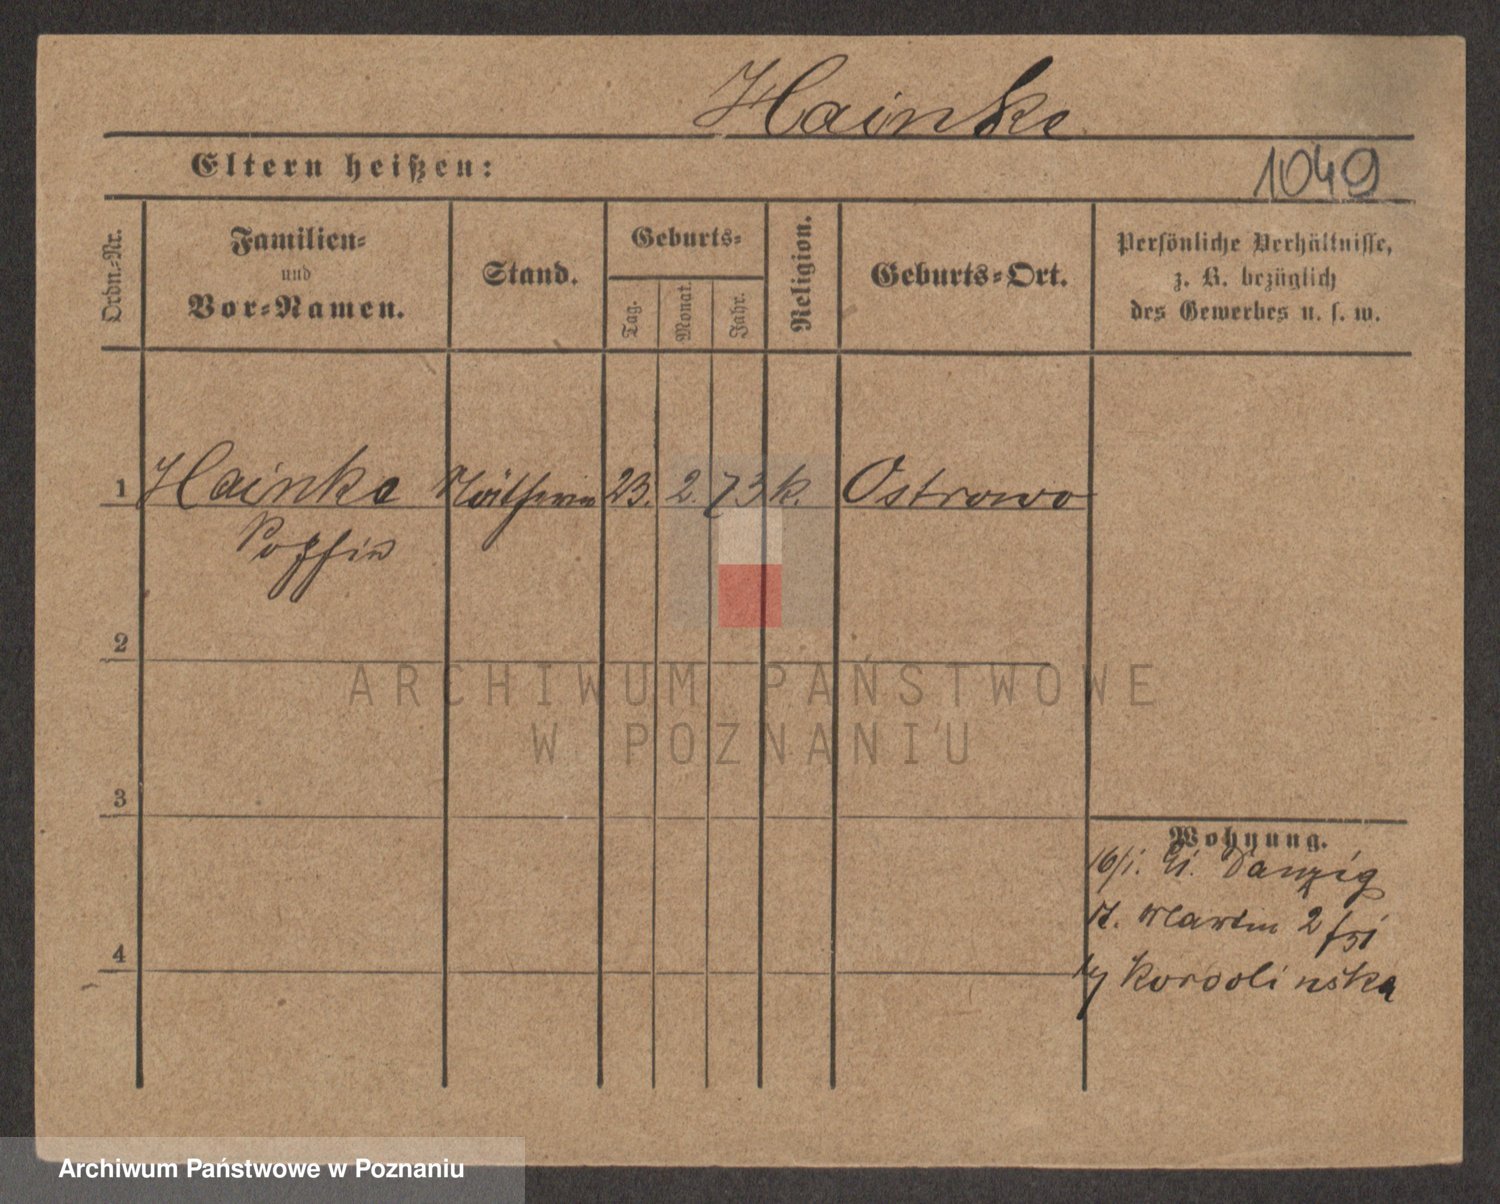 Hainke
Eltern heißen:
1049
Ordn.-Nr.
Familien-
und
Vor-Namen.
Stand.
Geburts-
Tag.
Monat.
Jahr.
Religion.
Geburts-Ort.
Persönliche Verhältnisse,
z. B. bezüglich
des Gewerbes u. s. w.
1 Hainke 23. 2. 73 k. Ostrowo
2
3
4
Wohnung.
16/1. Danzig
St. Martin 2
ARCHIWUM PAŃSTWOWE
W POZNANIU
Archiwum Państwowe w Poznaniu